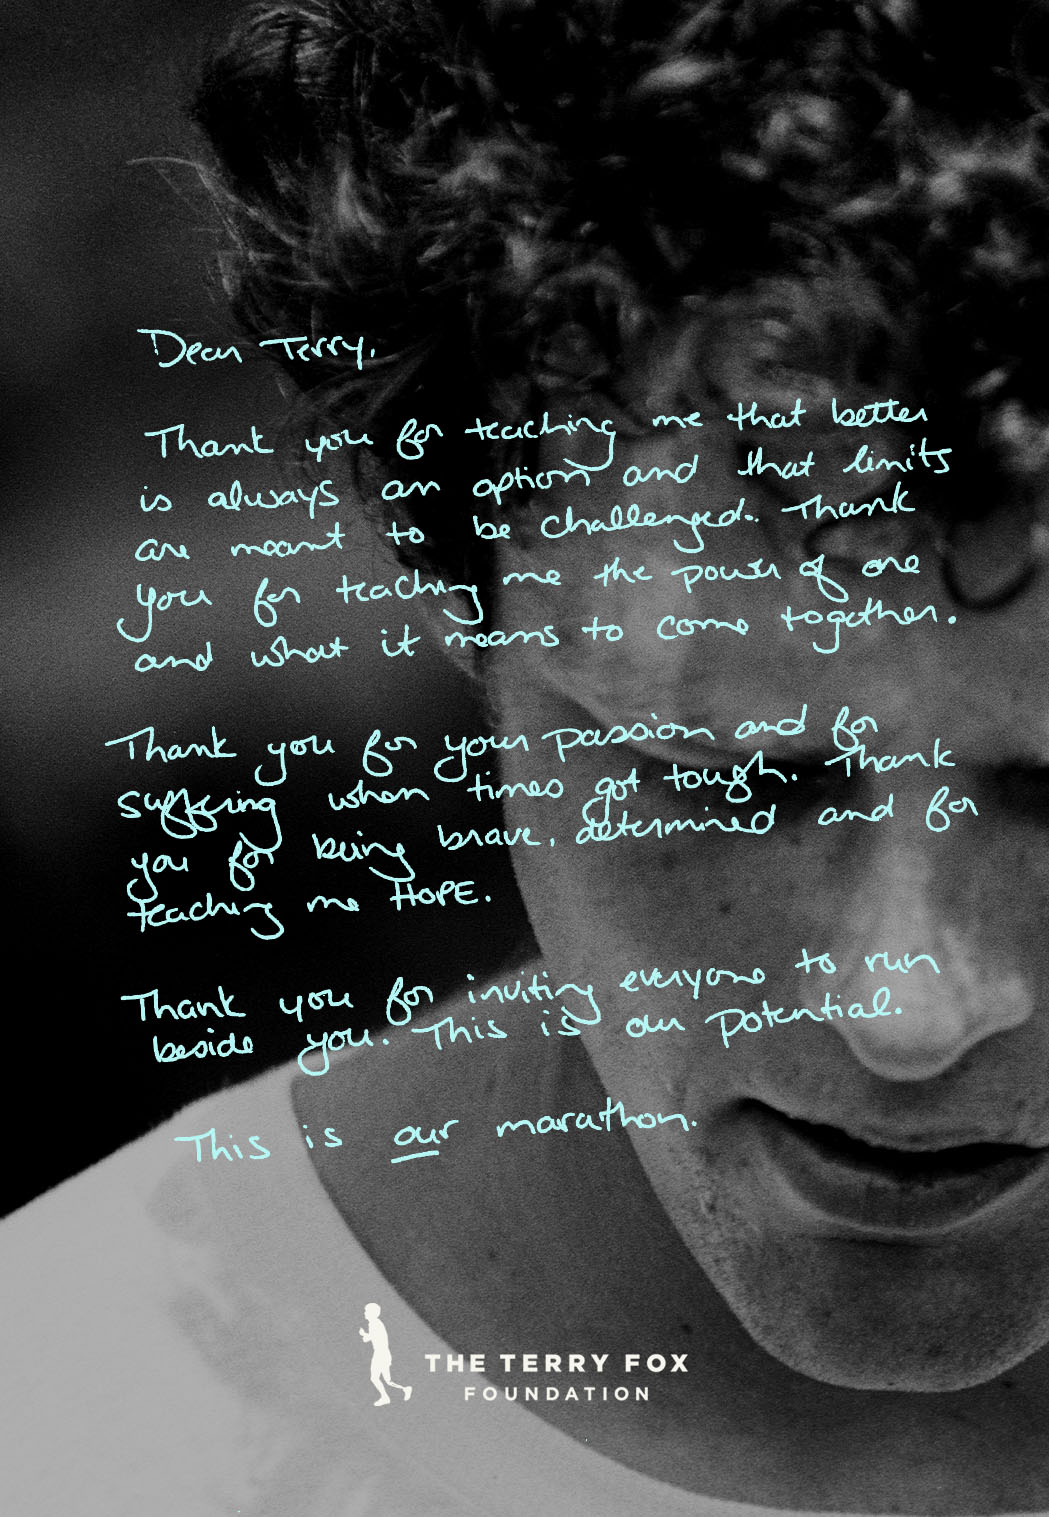 Dear Terry,
Thank you for teaching me that better
is always an option and that limits
are meant to be challenged. Thank
you for teaching me the power of one
and what it means to come together.
Thank you for your passion and for
suffering when times got tough. Thank
you for being brave, determined and for
teaching me HOPE.
Thank you for inviting everyone to run
beside you. This is our potential.
This is our marathon.
THE TERRY FOX
FOUNDATION